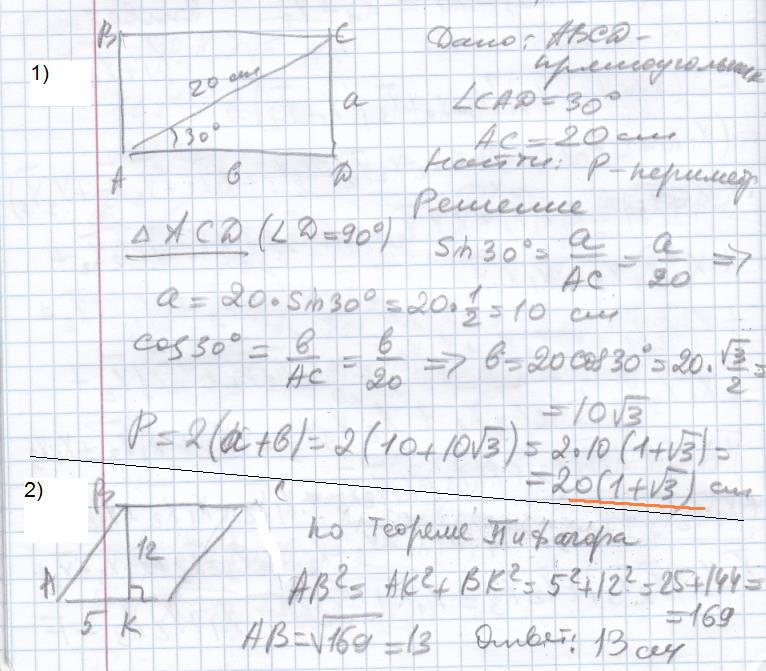 1)
B C
20 см
a
30°
A в D
Дано: ABCD-
прямоугольник
∠CAD=30°
AC=20 см
Найти: P-периметр
Решение
△ACD (∠D=90°)
sin30°= a/AC = a/20 =>
a = 20·sin30°=20·1/2=10 см
cos30°= в/AC = в/20 => в=20cos30°=20·√3/2=
=10√3
P=2(a+в)=2(10+10√3)=2·10(1+√3)=
=20(1+√3) см
2)
B C
12
A
5 K
по теореме Пифагора
AB²= AK²+BK²=5²+12²=25+144=
=169
AB=√169=13 Ответ: 13 см